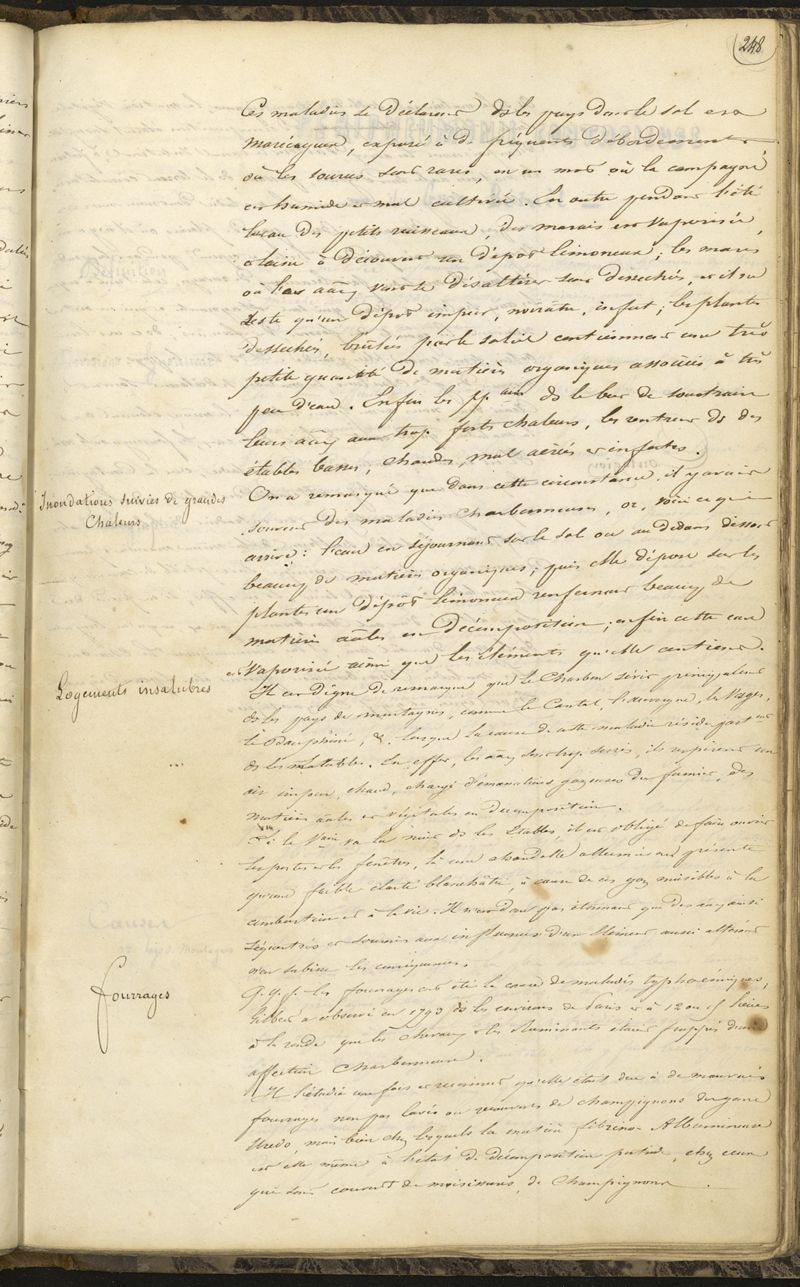 248
Ces maladies se déclarent ds les pays dont le sol est
marécageux, exposé à de fréquents débordements
où les sources sont rares, en un mot où la campagne
est humide et mal cultivée. En outre pendant l'été
l'eau des petits ruisseaux, des marais est vaporisée,
et laisse à découvert un dépôt limoneux; les mares
où les aãx vont se désaltérer sont desséchés, et il ne
reste qu'un dépôt impur, noirâtre, infect; les plantes
desséchées, brûlées par le soleil contiennent une très
petite quantité de matières organiques associées à très
peu d'eau. Enfin les pp.aires ds le but de soustraire
leurs aãx aux trop fortes chaleurs, les rentrent ds des
étables basses, chaudes, mal aérées et infectes.
Inondations suivies de grandes
Chaleurs
On a remarqué que dans cette circonstance, il y avait
souvent des maladies charbonneuses, or, voici ce qui
arrive: l'eau en séjournant sur le sol ou au dedans dissout
beaucp de matières organiques; puis elle dépose sur les
plantes un dépôt limoneux renfermant beaucp de
matières aãles en décomposition; enfin cette eau
est vaporisée ainsi que les éléments qu'elle contient.
Logements insalubres
Il est digne de remarque que le Charbon sévit principalemt
ds les pays de montagnes, comme le Cantal, l'auvergne, les Vosges,
le Dauphiné, &. lorsque la cause de cette maladie réside part
ds les étables. En effet, les aãx sont trop serrés, ils respirent un
air impur, chaud, chargé d'émanations gazeuses du fumier, des
matières aãles et végétales en décomposition.
Si le Vre va la nuit ds les Etables, il est obligé de faire ouvrir
les portes et les fenêtres, là une chandelle allumée ne présente
qu'une faible clarté blanchâtre, à cause de ces gaz nuisibles à la
combustion et à la vie. Il n'est donc pas étonnant que des aãx ainsi
séquestrés et soumis aux influences d'un élément aussi altérant
n'en subissent les conséquences.
Fourrages
Q.q.f. les fourrages ont été la cause de maladies typhoémiques,
Gilbert a observé en 1793 ds les environs de Paris et à 12 ou 15 lieues
à la ronde que les chevaux et les Ruminants étaient frappés d'une
affection Charbonneuse.
Il l'étudia une fois et reconnut qu'elle était due à de mauvais
fourrages non pas lavés ou recouverts de champignons du genre
Uredo, mais bien chez lesquels la matière fibrino-Albumineuse
est elle même à l'état de décomposition putride, chez ceux
qui sont couverts de moisissures, de Champignons.